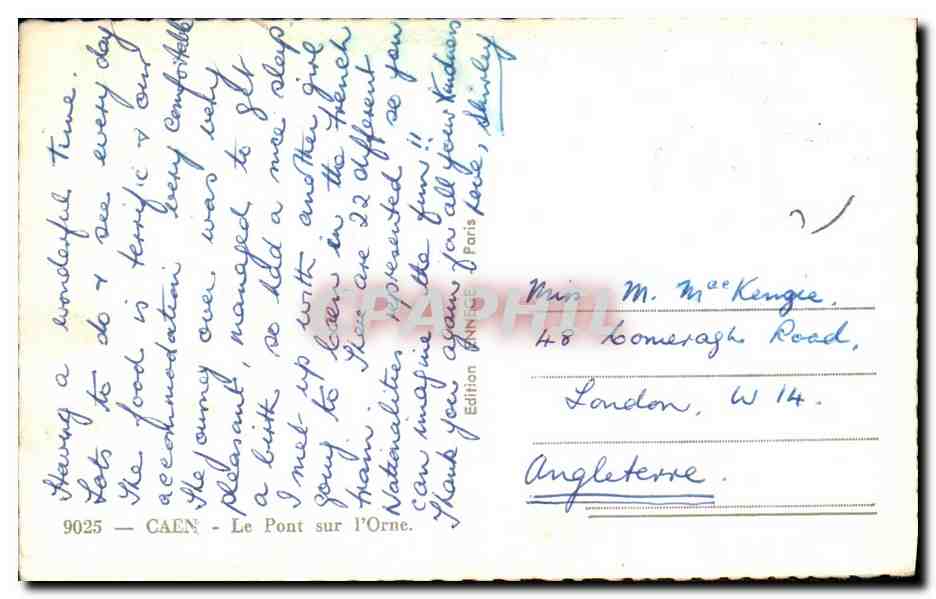 Having a wonderful time.
Lots to do & see every day
The food is terrific & our
accommodation very comfortable
The journey over was very
pleasant, managed to get
a birth so had a nice sleep
I met up with another girl
going to Caen in the French
train. There are 22 different
Nationalities represented so you
can imagine the fun!!
Thank you again for all your kindness
Shirley
Edition ENNECE Paris
Miss M. MacKenzie.
48 Comeragh Road,
London, W 14.
Angleterre.
9025 — CAEN - Le Pont sur l'Orne.
CPAPHIL